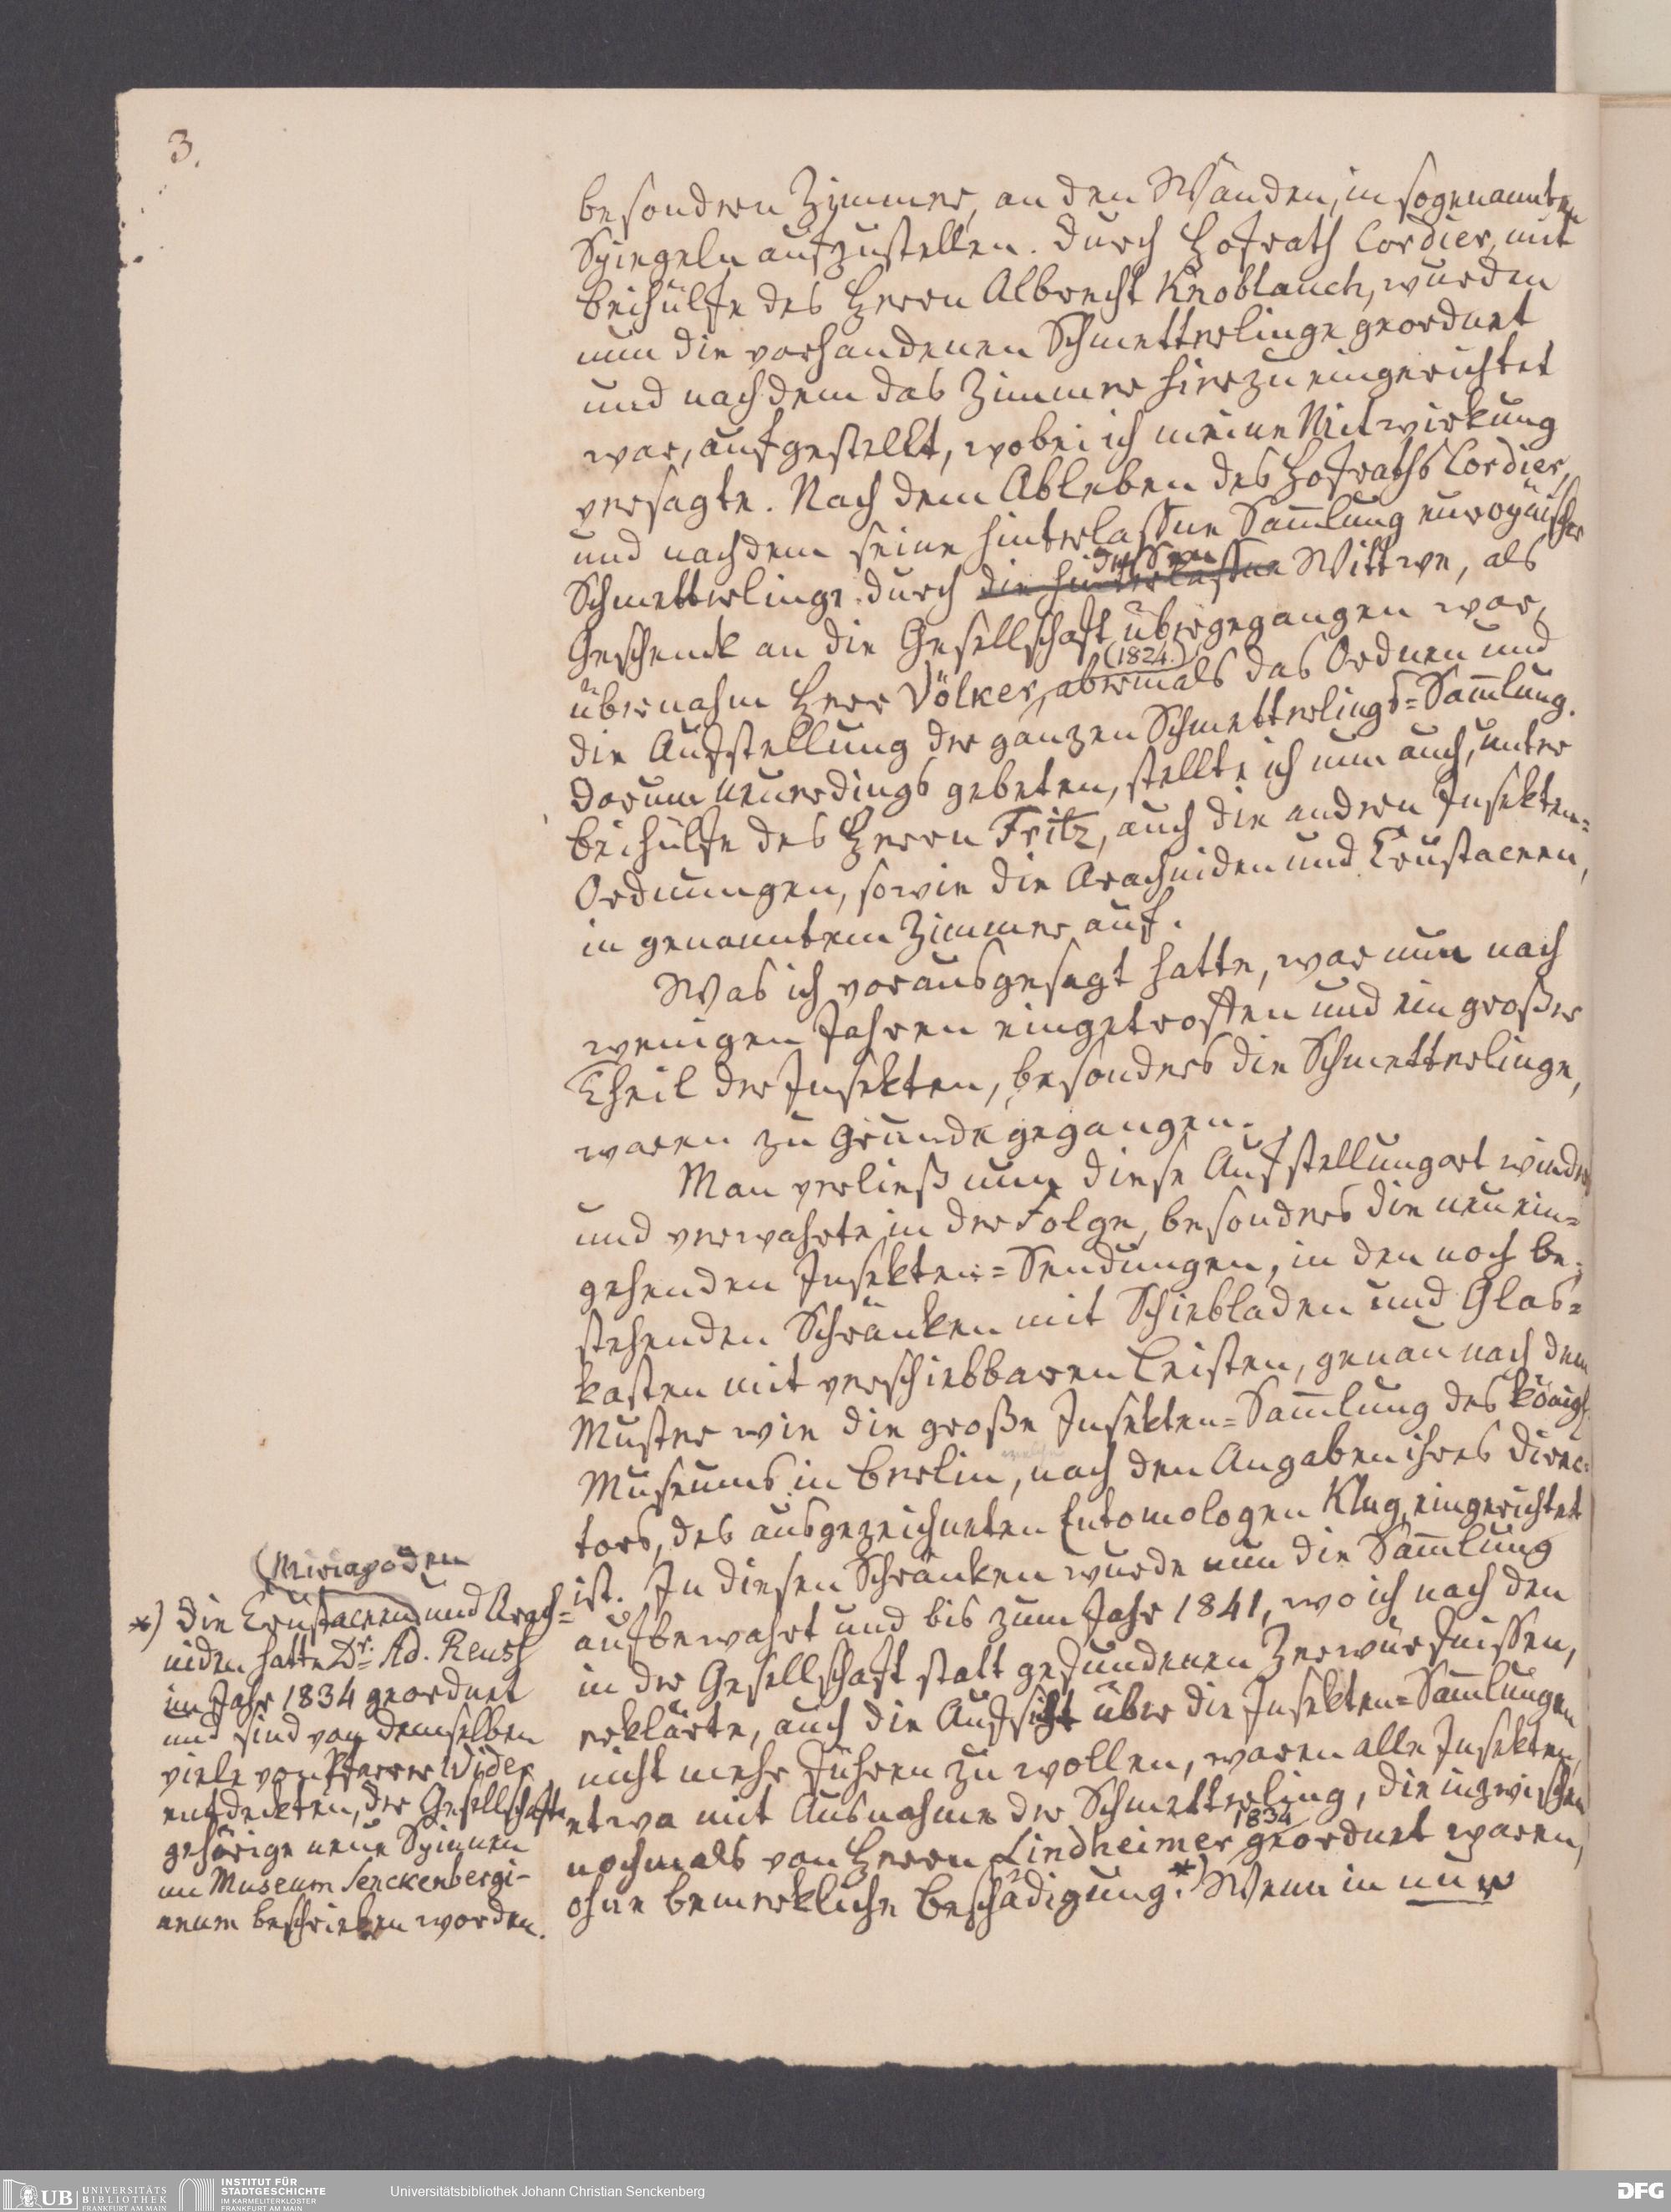 3.
besondern Zimmer, an den Wänden, in sogenannten
Spiegeln aufzustellen. Durch Hofrath Cordier, mit
Beihülfe des Herrn Albrecht Knoblauch, wurden
nun die vorhandenen Schmetterlinge geordnet
und nachdem das Zimmer hierzu eingerichtet
war, aufgestellt, wobei ich meine Mitwirkung
versagte. Nach dem Ableben des Hofraths Cordier,
und nachdem seine hinterlassne Sam̄lung europäischer
dessen
Schmetterlinge durch die hinterlassne Wittwe, als
Geschenk an die Gesellschaft übergegangen war,
(1824.)
übernahm Herr Völker, abermals das Ordnen und
die Aufstellung der ganzen Schmetterlings=Sam̄lung.
Darum neuerdings gebeten, stellte ich nun auch, unter
Beihülfe des Herrn Fritz, auch die andern Insekten=
Ordnungen, sowie die Arachniden und Crustaceen,
in genanntem Zimmer auf.
Was ich vorausgesagt hatte, war nun nach
wenigen Jahren eingetroffen und ein großer
Theil der Insekten, besonders die Schmetterlinge,
waren zu Grunde gegangen.
Man verließ nun diese Aufstellungart wieder
und verwahrte in der Folge, besonders die neu ein=
gehenden Insekten=Sendungen, in den noch be=
stehenden Schränken mit Schiebladen und Glas=
kasten mit verschiebbaren Leisten, genau nach dem
Muster wie die große Insekten=Sam̄lung des königl.
welche
Museums in Berlin, nach den Angaben ihres Direc=
tors, des ausgezeichneten Entomologen Klug, eingerichtet
ist. In diesen Schränken wurde nun die Sam̄lung
aufbewahrt und bis zum Jahr 1841, wo ich nach den
in der Gesellschaft statt gefundenen Zerwürfnissen,
erklärte, auch die Aufsicht über die Insekten=Sam̄lungen
nicht mehr führen zu wollen, waren alle Insekten,
etwa mit Ausnahme der Schmetterling, die inzwischen
1834
nochmals von Herrn Lindheimer geordnet waren,
ohne bemerkliche Beschädigung.*) Wenn in nur
(Miriapoden
*) Die Crustaceen und Arach=
niden hatte Dr. Ad. Reuss
im Jahr 1834 geordnet
und sind von demselben
viele von Pfarrer Wider
entdeckten, der Gesellschaft
gehörige neue Spinnen
im Museum Senckenbergi-
anum beschrieben worden.
UB UNIVERSITÄTS
BIBLIOTHEK
FRANKFURT AM MAIN
INSTITUT FÜR
STADTGESCHICHTE
IM KARMELITERKLOSTER
FRANKFURT AM MAIN
Universitätsbibliothek Johann Christian Senckenberg
DFG